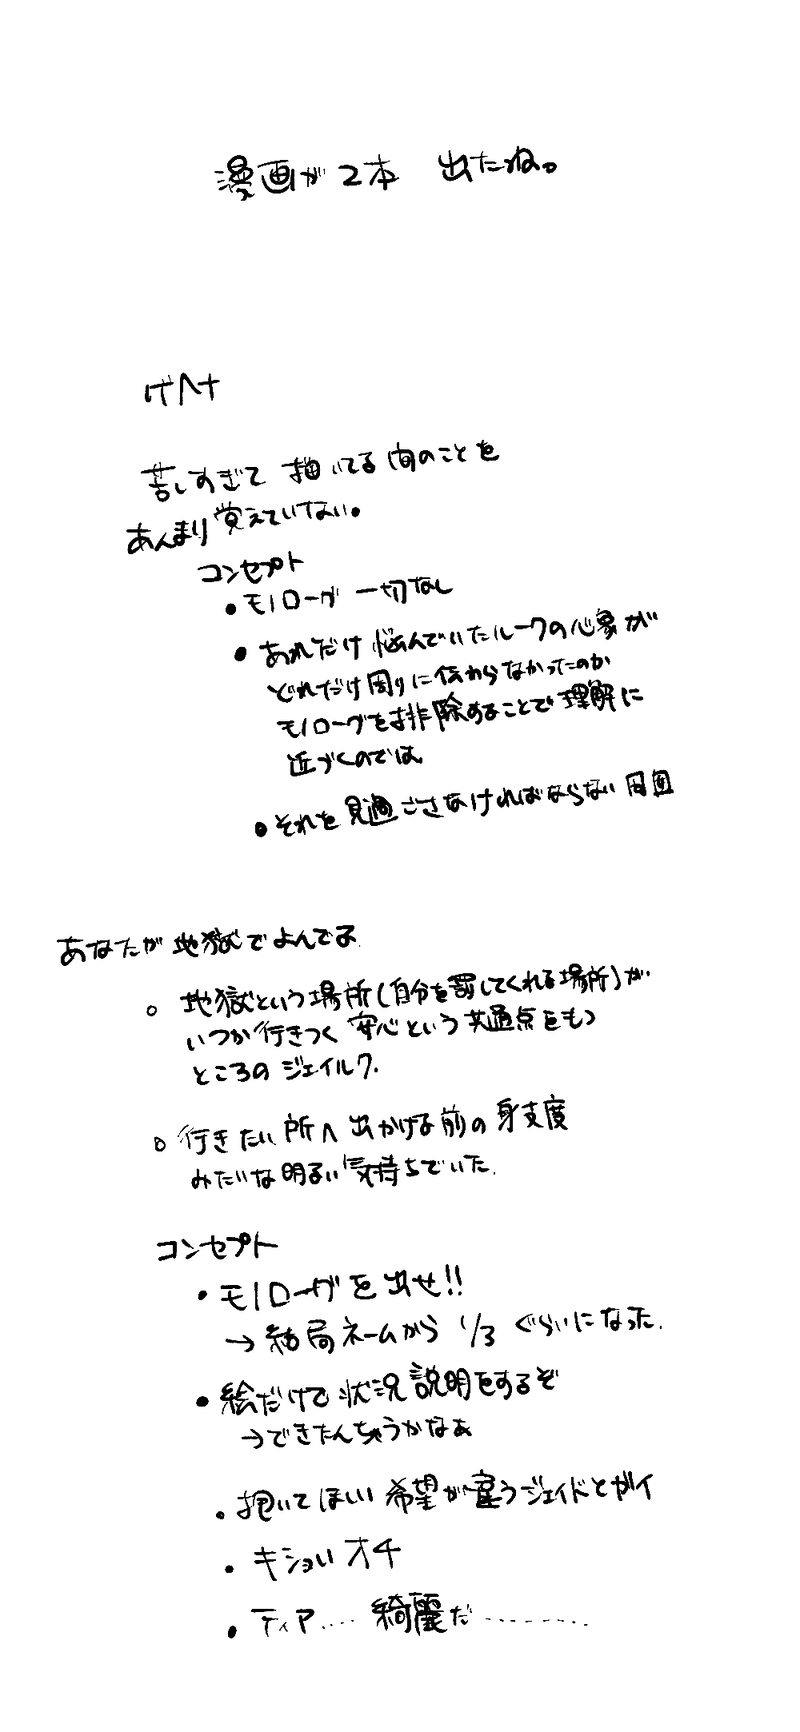 漫画が2本 出たね。
ゲヘナ
苦しすぎて 描いてる間のことを
あんまり覚えていない。
コンセプト
●モノローグ 一切なし
●あれだけ悩んでいたルークの心象が
どれだけ周りに伝わらなかったのか
モノローグを排除することで理解に
近づくのでは。
●それを見過ごさなければならない周囲
あなたが地獄でよんでる
○地獄という場所(自分を罰してくれる場所)が
いつか行きつく安心という共通点をもつ
ところのジェイルク.
○行きたい所へ出かける前の身支度
みたいな明るい気持ちでいた.
コンセプト
・モノローグを出せ!!
→結局ネームから1/3ぐらいになった.
・絵だけで状況説明をするぞ
→できたんちゃうかなぁ
・抱いてほしい希望が違うジェイドとガイ
・キショいオチ
・ティア.... 綺麗だ.........